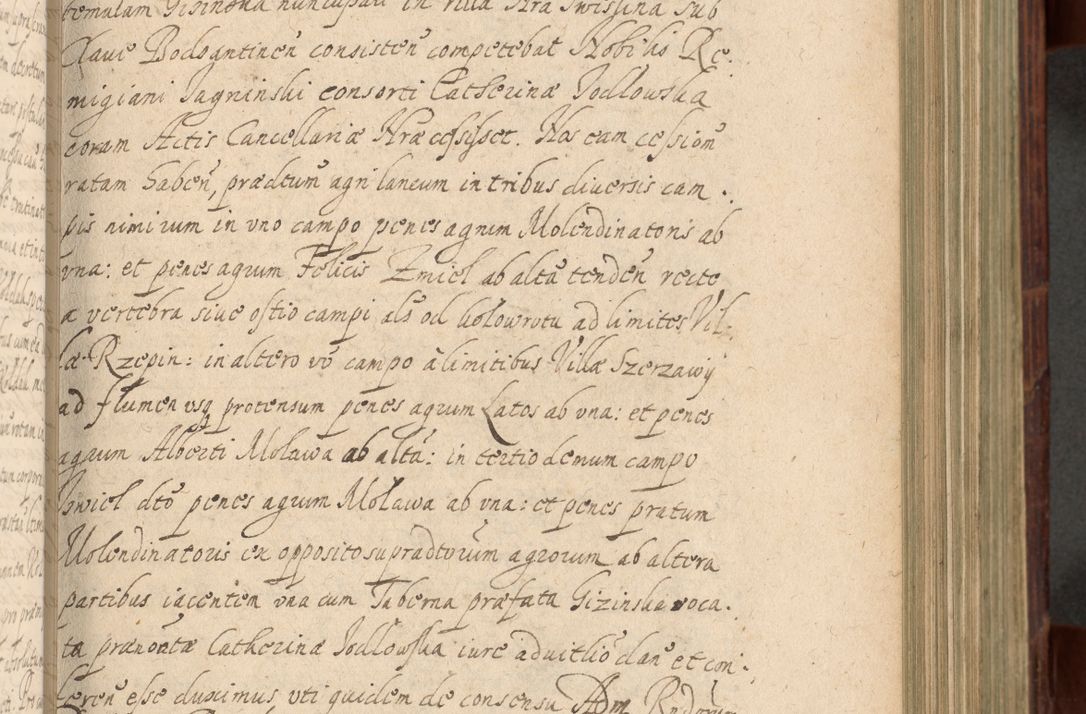 temulam Gisinska nuncupari in villa Nra Swisslina sub
Clave Bodsantinen̄ consisten̄ competebat Nobilis Re-
migiani Jagninski consorti Catherinæ Jodlowska
coram Actis Cancellariæ Nræ cessisset. Nos eam cession̄
ratam haben̄, prædctum̄ agri laneum in tribus diversis cam-
pis nimirum in uno campo penes agrum Molendinatoris ab
vna: et penes agrum Felicis Zmiel ab altā tenden̄ recte
a vertebra siue ostio campi als od kołowrotu ad limites Vil-
læ Rzepin: in altero vō campo a limitibus Villæ Szerzawy
ad flumen usq protensum penes agrum Latos ab vna: et penes
agrum Alberti Moława ab altā: in tertio demum campo
dctō penes agrum Moława ab vna: et penes pratum
Molendinatoris ex opposito supradctorum agrorum ab altera
partibus iacentem vna cum Taberna præfata Gizinska voca-
ta prænontæ Catherinæ Jodlowska iure advitlīō dan̄ et con-
feren̄ esse duximus, vti quidem de consensu Adm Rndorum